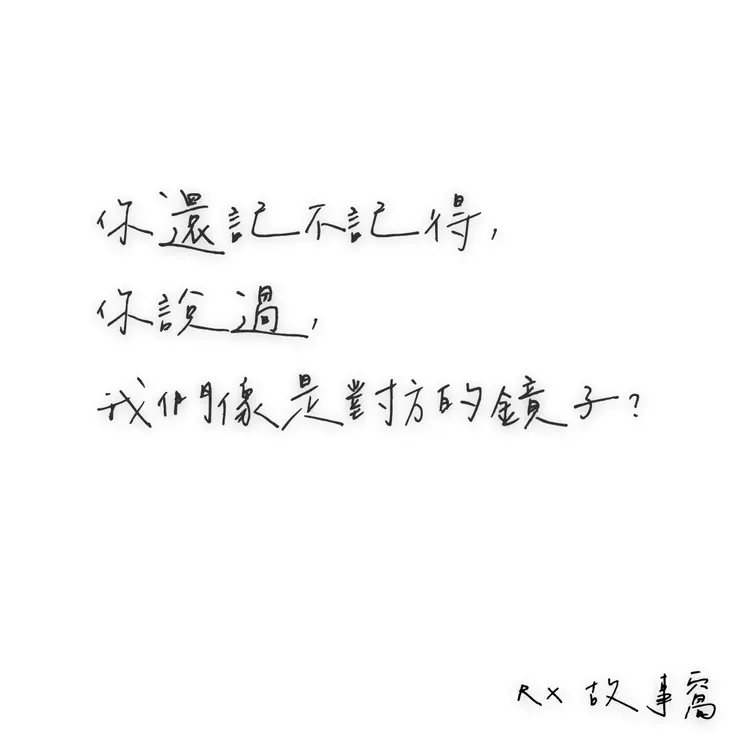 你還記不記得,
你說過,
我們像是對方的鏡子?
RX 故事窩